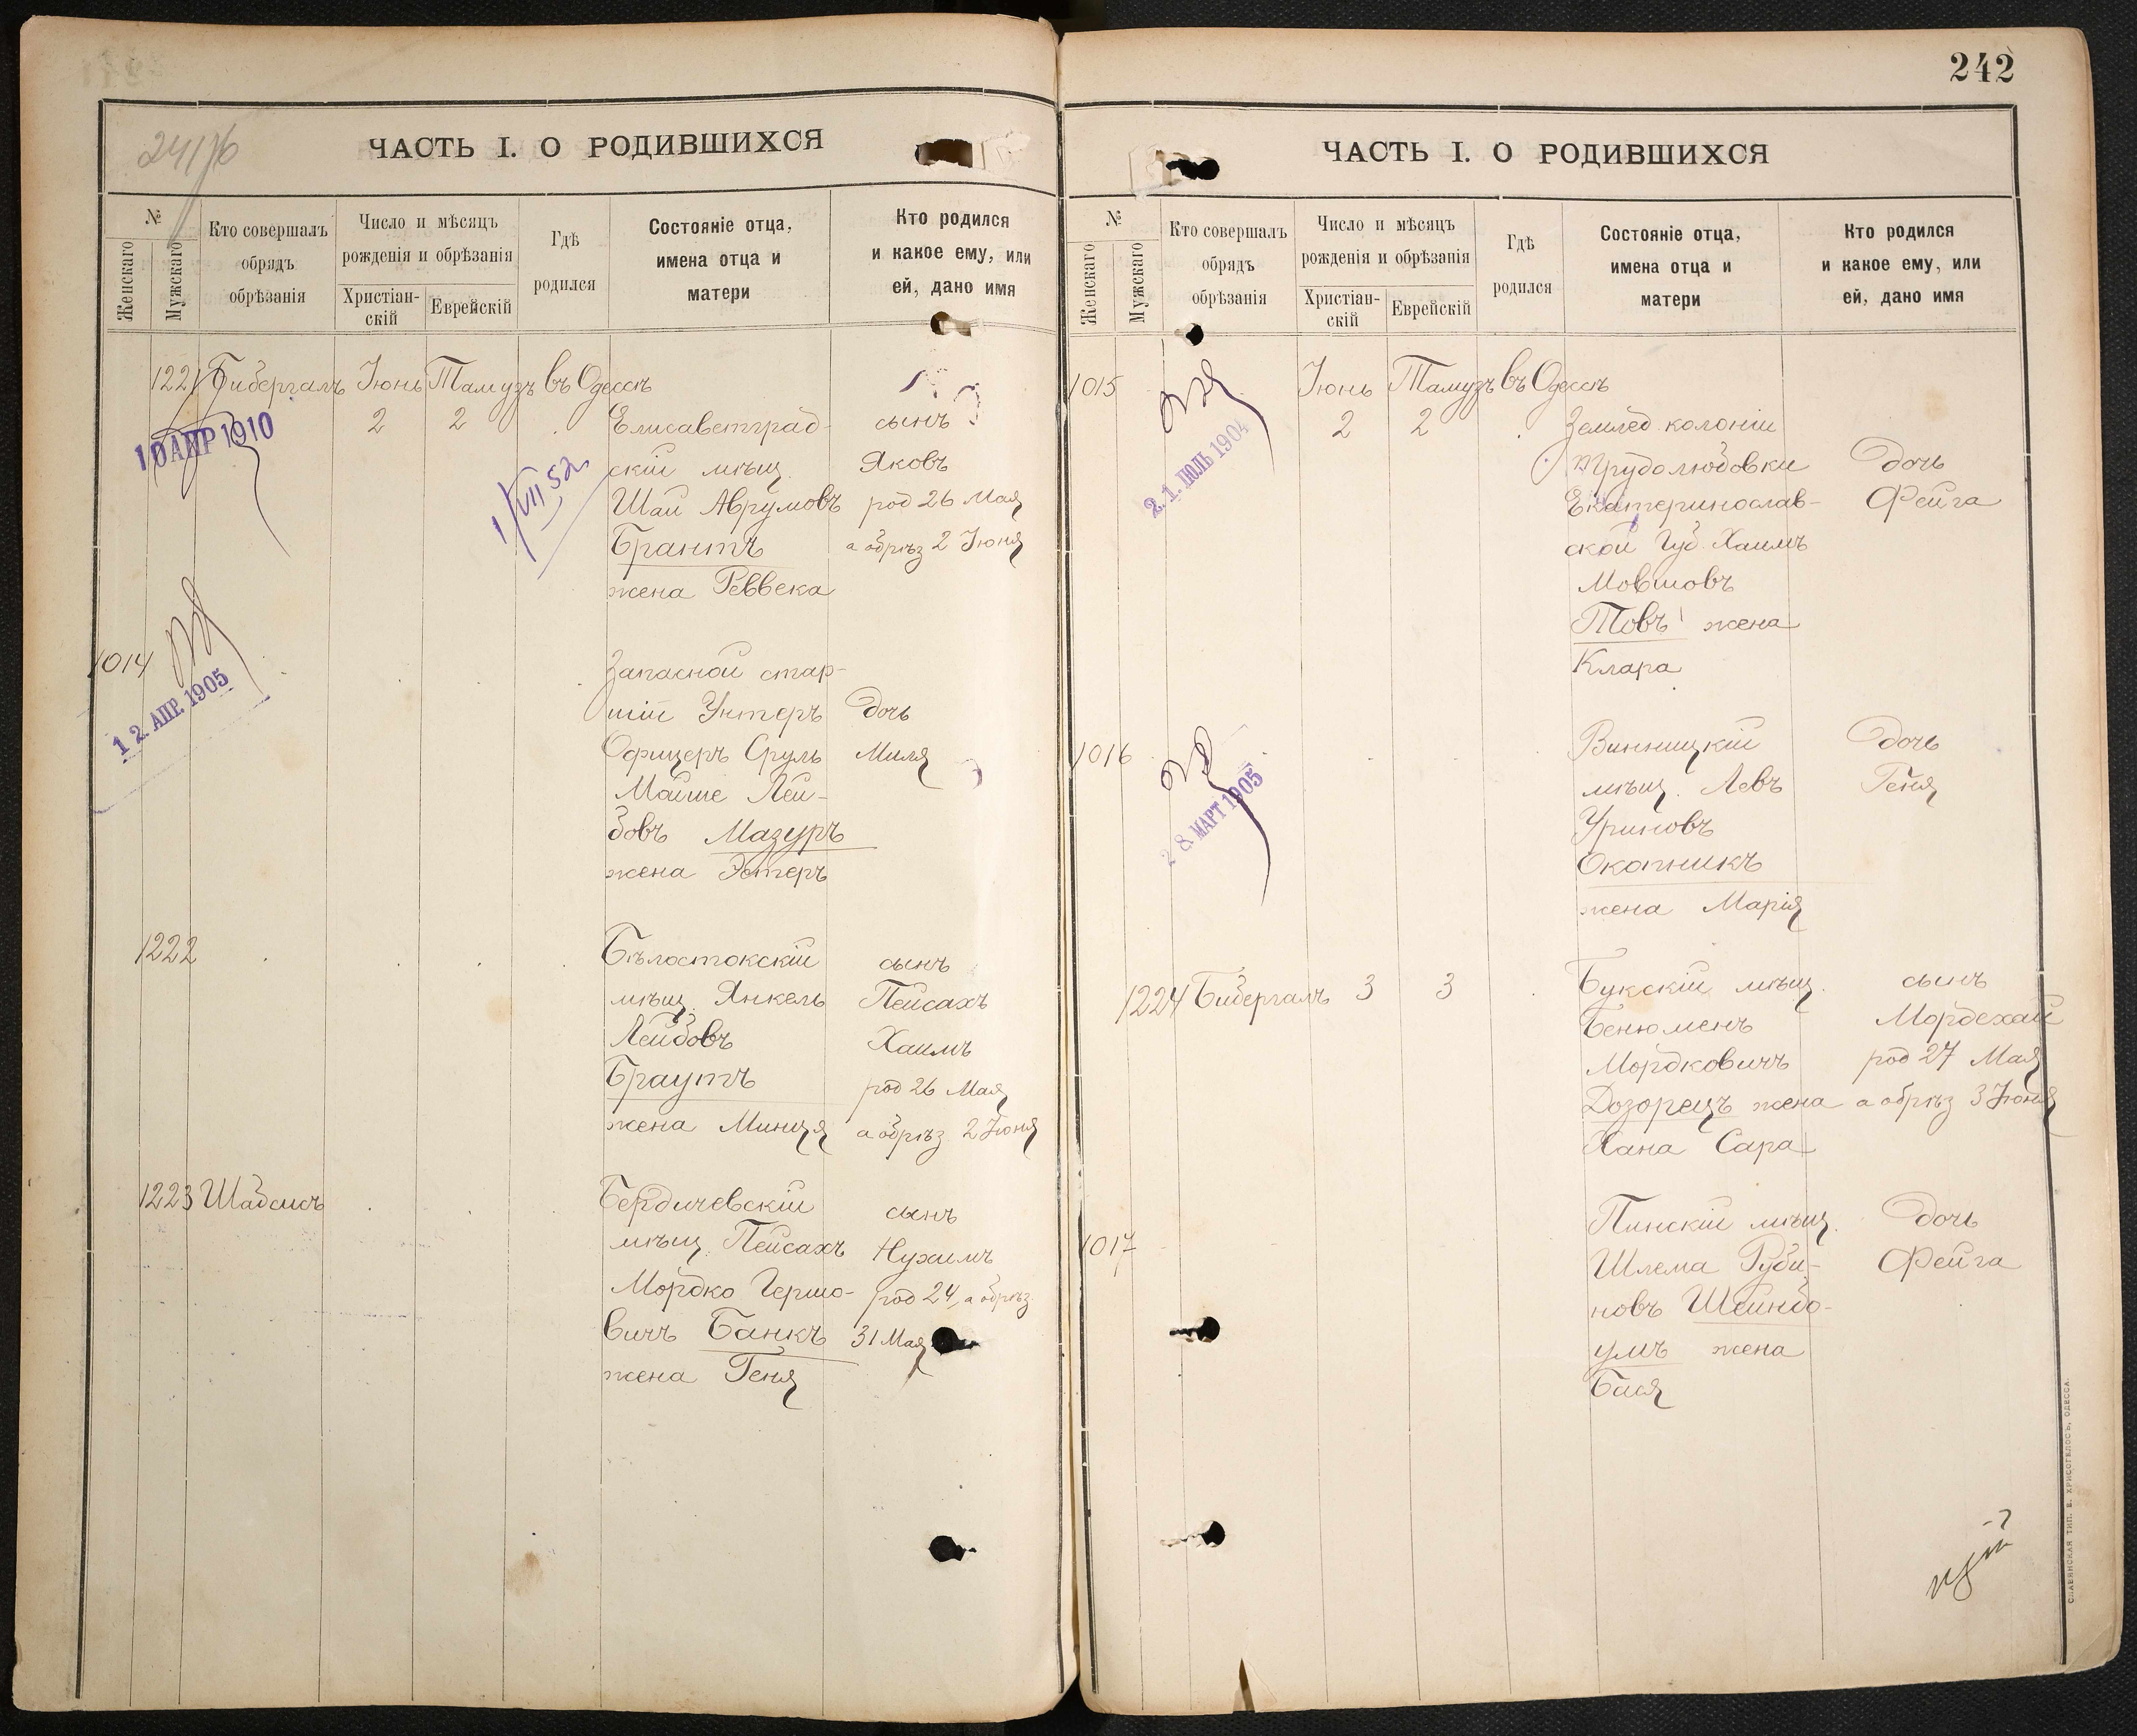 24176
ЧАСТЬ I. О РОДИВШИХСЯ
№
Женскаго
Мужскаго
Кто совершалъ
обрядъ
обрѣзанія
Число и мѣсяцъ
рожденія и обрѣзанія
Христіан-
скій
Еврейскій
Гдѣ
родился
Состояніе отца,
имена отца и
матери
Кто родился
и какое ему, или
ей, дано имя
1221 Бибергалъ Іюнь Тамузъ въ Одессѣ
2 2 Елисаветград- сынъ
10 АПР 1910
скій мѣщ. Яковъ
1/VII 52
Шаи Аврумовъ род 26 Мая
Брантъ а обрѣз 2 Іюня
жена Реввека
1014
12. АПР. 1905
Запасной стар-
шій Унтеръ дочь
Офицеръ Сруль Миля
Мойше Лей-
бовъ Мазуръ
жена Эстеръ
1222 Бѣлостокскій сынъ
мѣщ. Янкель Пейсахъ
Лейбовъ Хаимъ
Браутъ род 26 Мая
жена Минця а обрѣз. 2 Іюня
1223 Шабсисъ Бердичевскій сынъ
мѣщ. Пейсахъ Нухимъ
Мордко Гершо- род 24, а обрѣз.
вичъ Банкъ 31 Мая
жена Геня
242
ЧАСТЬ I. О РОДИВШИХСЯ
№
Женскаго
Мужскаго
Кто совершалъ
обрядъ
обрѣзанія
Число и мѣсяцъ
рожденія и обрѣзанія
Христіан-
скій
Еврейскій
Гдѣ
родился
Состояніе отца,
имена отца и
матери
Кто родился
и какое ему, или
ей, дано имя
1015 Іюнь Тамузъ въ Одессѣ
2 2 Землед. колоніи
21. ІЮЛЬ 1904
Трудолюбовки дочь
Екатеринослав- Фейга
ской Губ. Хаимъ
Мовшовъ
Товъ жена
Клара
1016 Винницкій дочь
28 МАРТ 1905
мѣщ. Левъ Геня
Уриновъ
Окопникъ
жена Марія
1224 Бибергалъ 3 3 Букскій мѣщ. сынъ
Бенюменъ Мордехай
Мордковичъ род 27 Мая
Дозорецъ жена а обрѣз 3 Іюня
Хана Сара
1017 Пинскій мѣщ. дочь
Шлема Руби- Фейга
новъ Шейнбо-
умъ жена
Бася
СЛАВЯНСКАЯ ТИП. Е. ХРИСОГЕЛОСЪ, ОДЕССА.